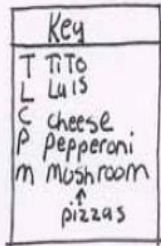 Key
T TiTo
L Luis
C cheese
P Pepperoni
m mushroom
↑
pizzas